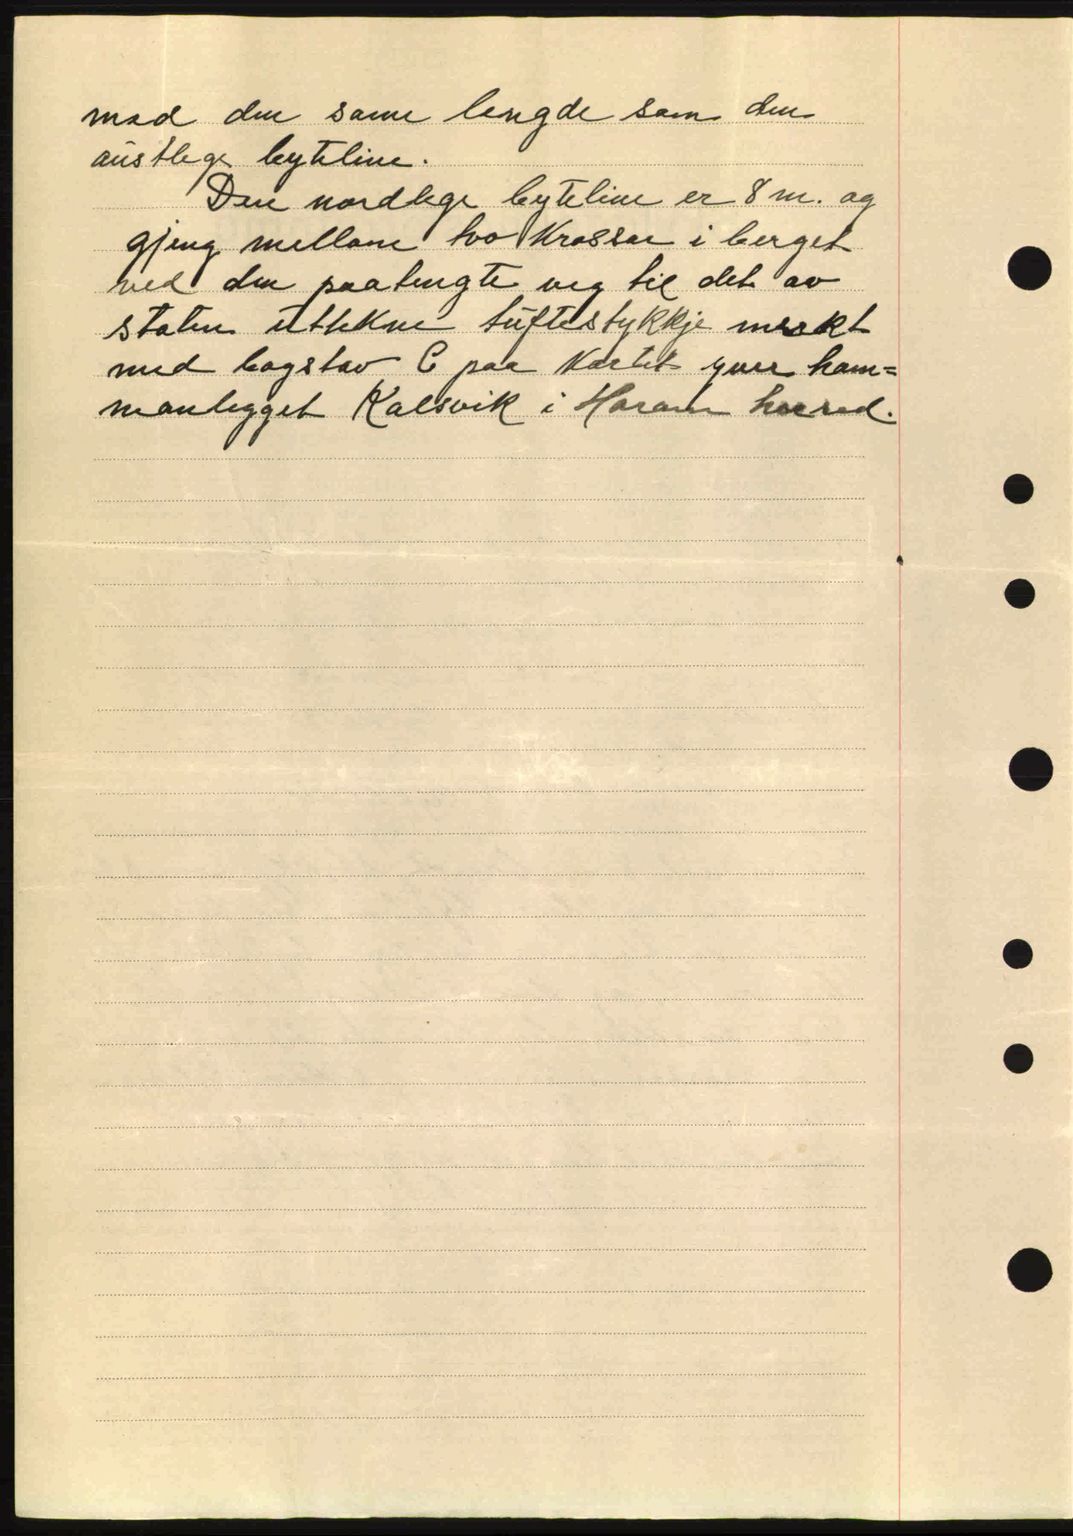 med den same lengde som den
austlege byteline.
Den nordlege byteline er 8 m. og
gjeng mellom tvo Krossar i berget
ved den paatengte veg til det av
staten uttekne tuftestykkje merkt
med bogstav C paa Kartet yver ham=
nanlegget Kalsvik i Haram herred.